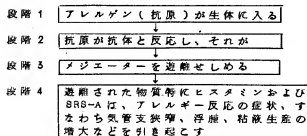 段階1 アレルゲン(抗原)が生体に入る
段階2 抗原が抗体と反応し、それが
段階3 メジエーターを遊離せしめる
段階4 遊離された物質特にヒスタミンおよび
SRS-Aは、アレルギー反応の症状、す
なわち気管支狭窄、浮腫、粘液生産の
増大などを引き起こす